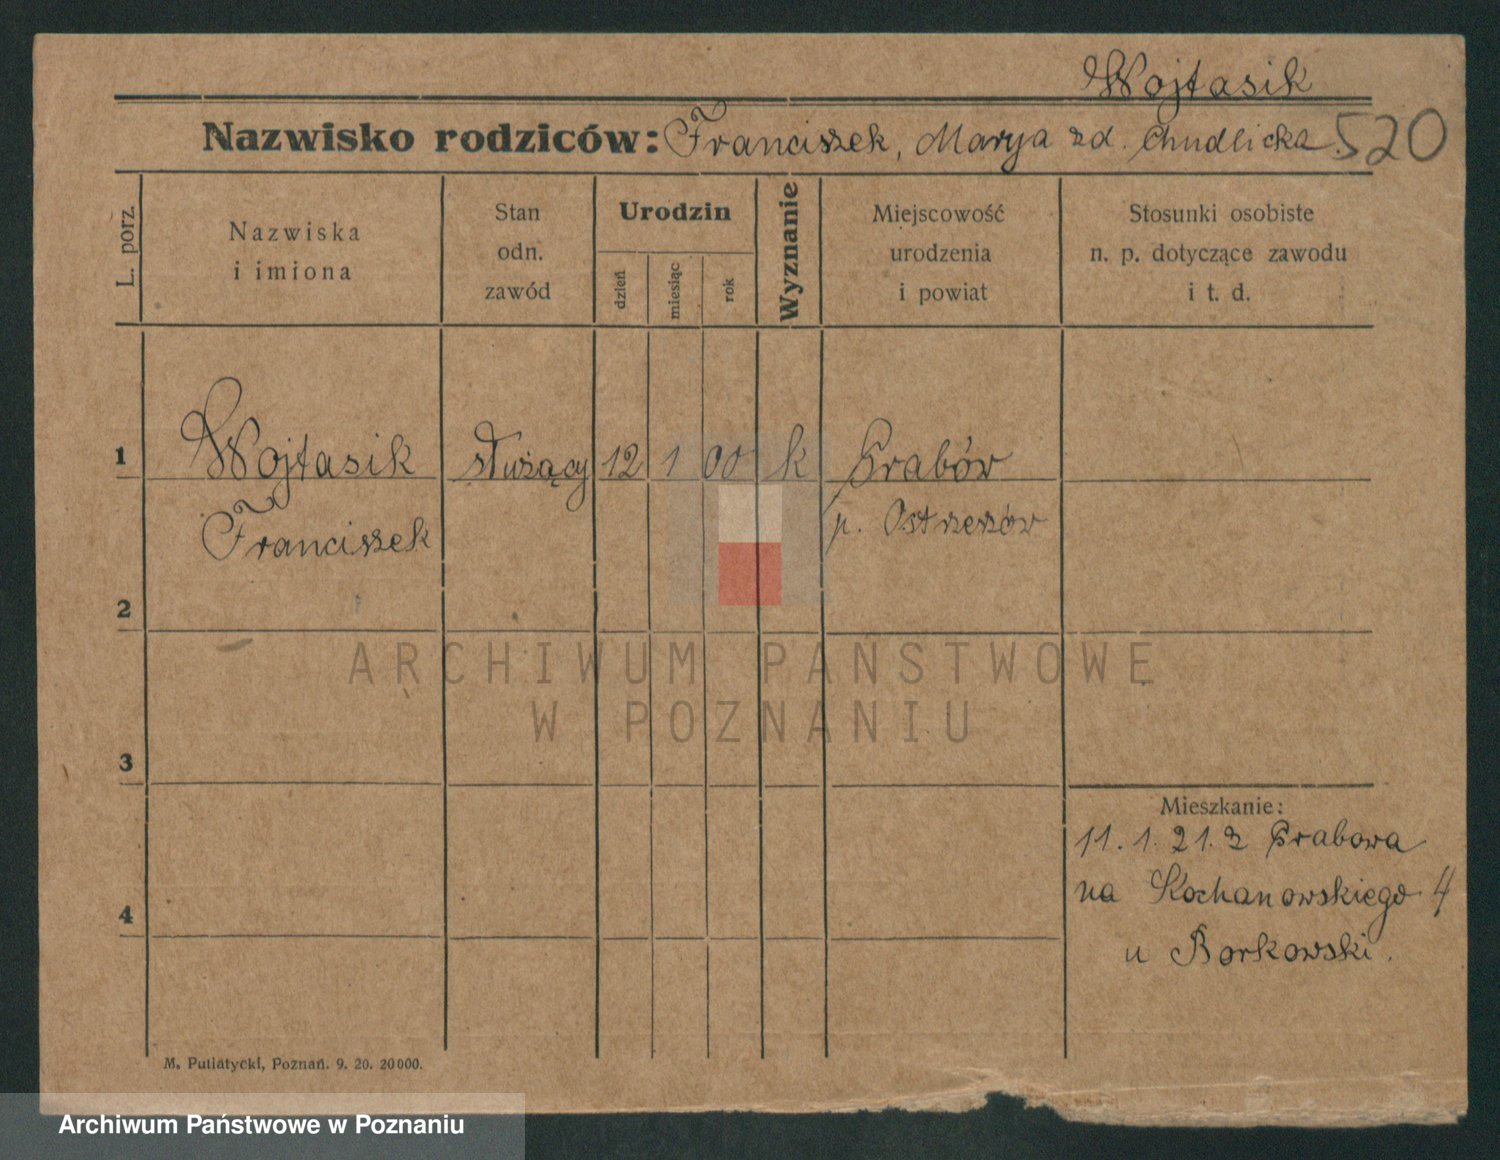 Wojtasik
Nazwisko rodziców: Franciszek, Marya zd. Chudlicka. 520
L. porz.
Nazwiska
i imiona
Stan
odn.
zawód
Urodzin
dzień
miesiąc
rok
Wyznanie
Miejscowość
urodzenia
i powiat
Stosunki osobiste
n. p. dotyczące zawodu
i t. d.
1 Wojtasik służący 12 1 00 k Grabów
Franciszek p. Ostrzeszów
2
3
4
Mieszkanie:
11. 1. 21. z Grabowa
na Kochanowskiego 4
u Borkowski.
M. Putiatycki, Poznań. 9. 20. 20000.
ARCHIWUM PAŃSTWOWE
W POZNANIU
Archiwum Państwowe w Poznaniu